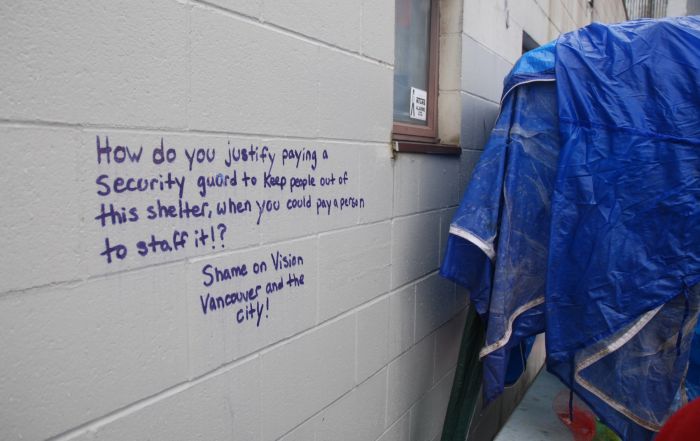 How do you justify paying a
Security guard to Keep people out of
this shelter, when you could pay a person
to staff it!?
Shame on Vision
Vancouver and the
city!